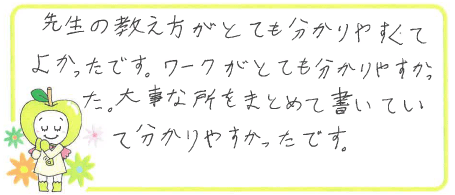 先生の教え方がとても分かりやすくて
よかったです。ワークがとても分かりやすかっ
た。大事な所をまとめて書いてい
て分かりやすかったです。